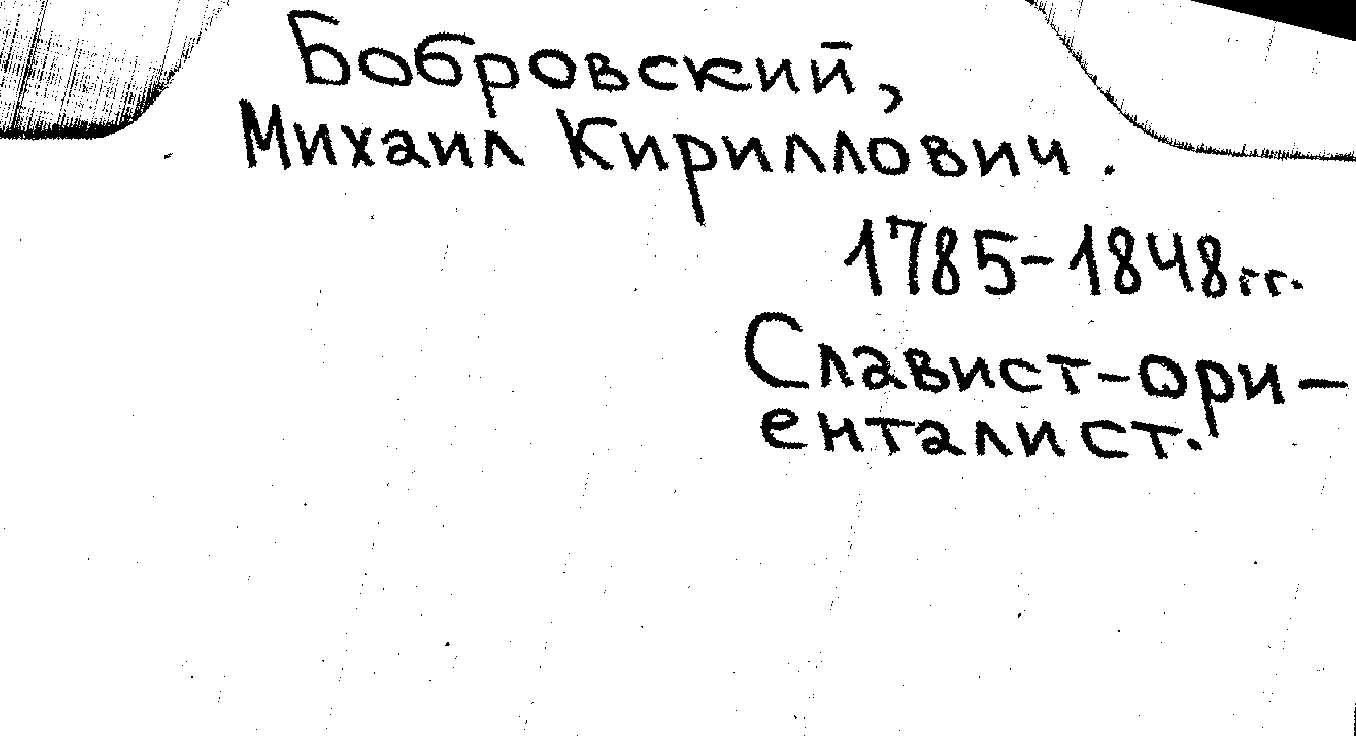 Бобровский,
Михаил Кириллович.
1785-1848гг.
Славист-ори-
енталист.